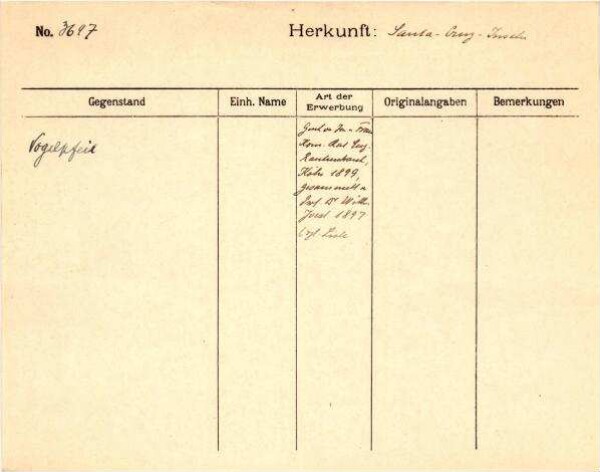 No. 3697
Herkunft: Santa-Cruz-Inseln
Gegenstand
Einh. Name
Art der
Erwerbung
Originalangaben
Bemerkungen
Vogelpfeil
Gesch. v. Hrn. u. Frau
Kom. Rat Eug.
Rautenstrauch,
Köln 1899,
gesammelt v.
Prof. Dr Wilh.
Joest 1897